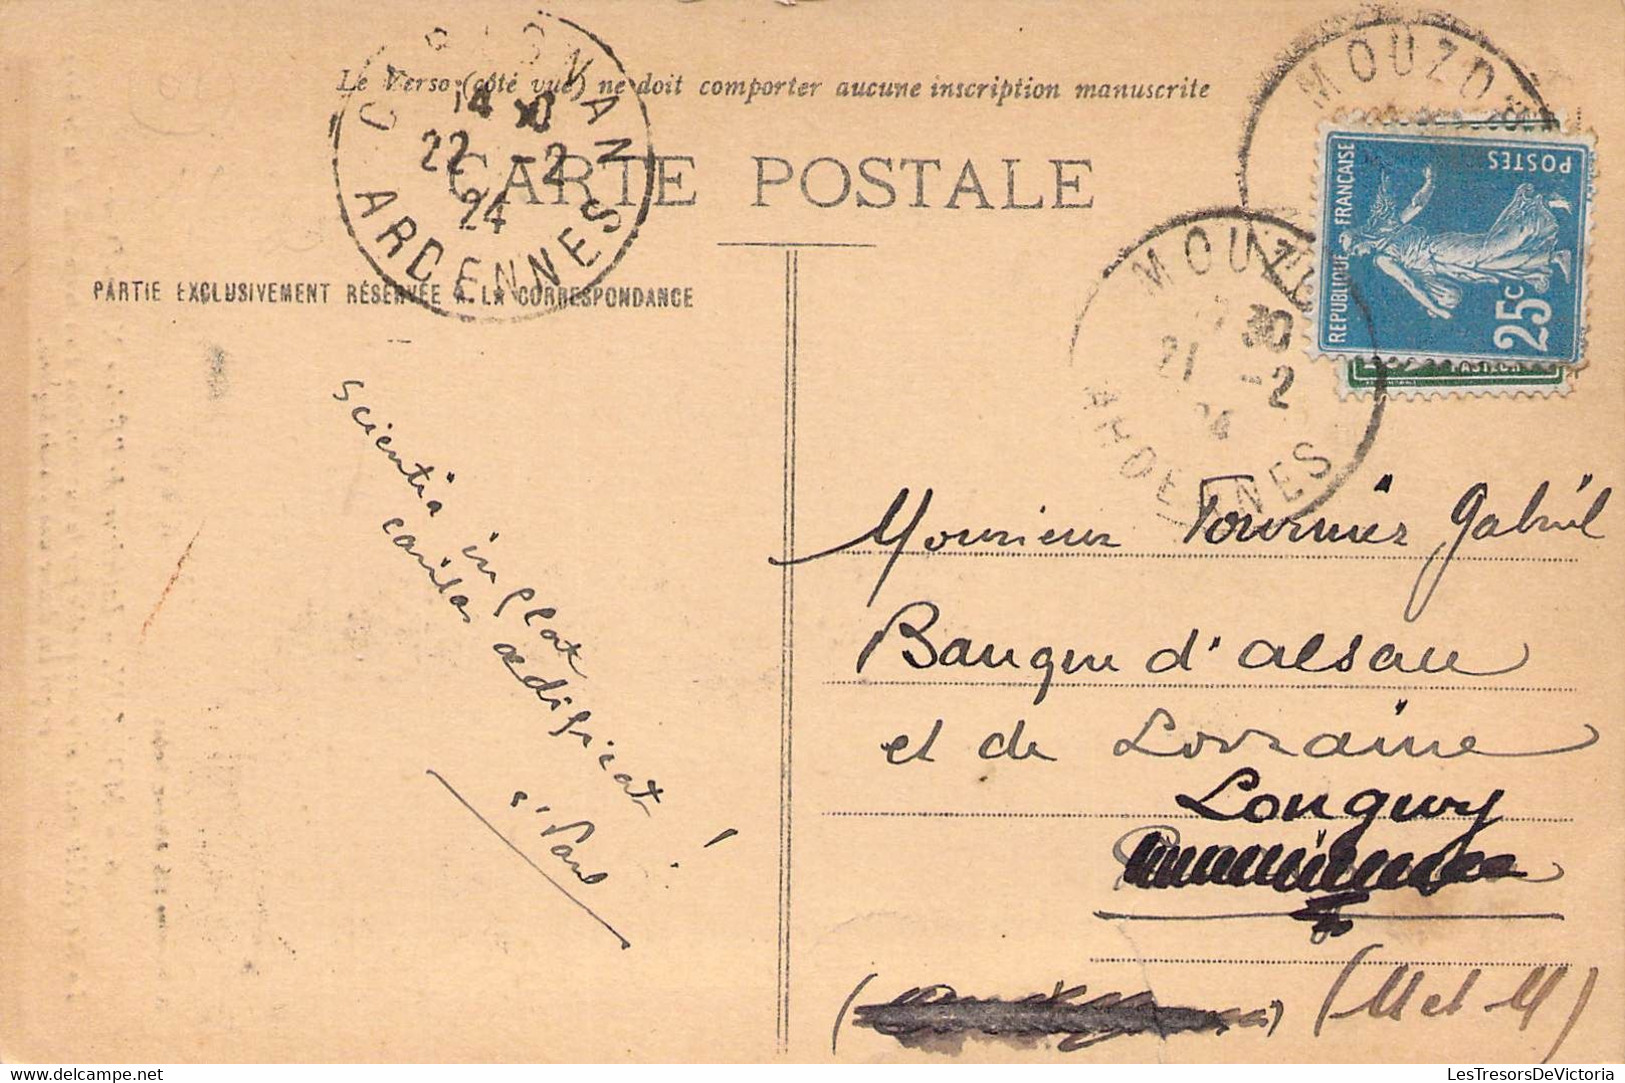 Le Verso (côté vue) ne doit comporter aucune inscription manuscrite
CARTE POSTALE
PARTIE EXCLUSIVEMENT RÉSERVÉE A LA CORRESPONDANCE
CARIGNAN
22 -2
24
ARDENNES
MOUZON
MOUZON
30
21 -2
24
ARDENNES
REPUBLIQUE FRANÇAISE
POSTES
25c
PASTEUR
Scientia inflat
caritas aedificat !
s! Paul
Monsieur Fournier Gabriel
Banque d'alsace
et de Lorraine
Longwy
(M et M)
LesTresorsDeVictoria